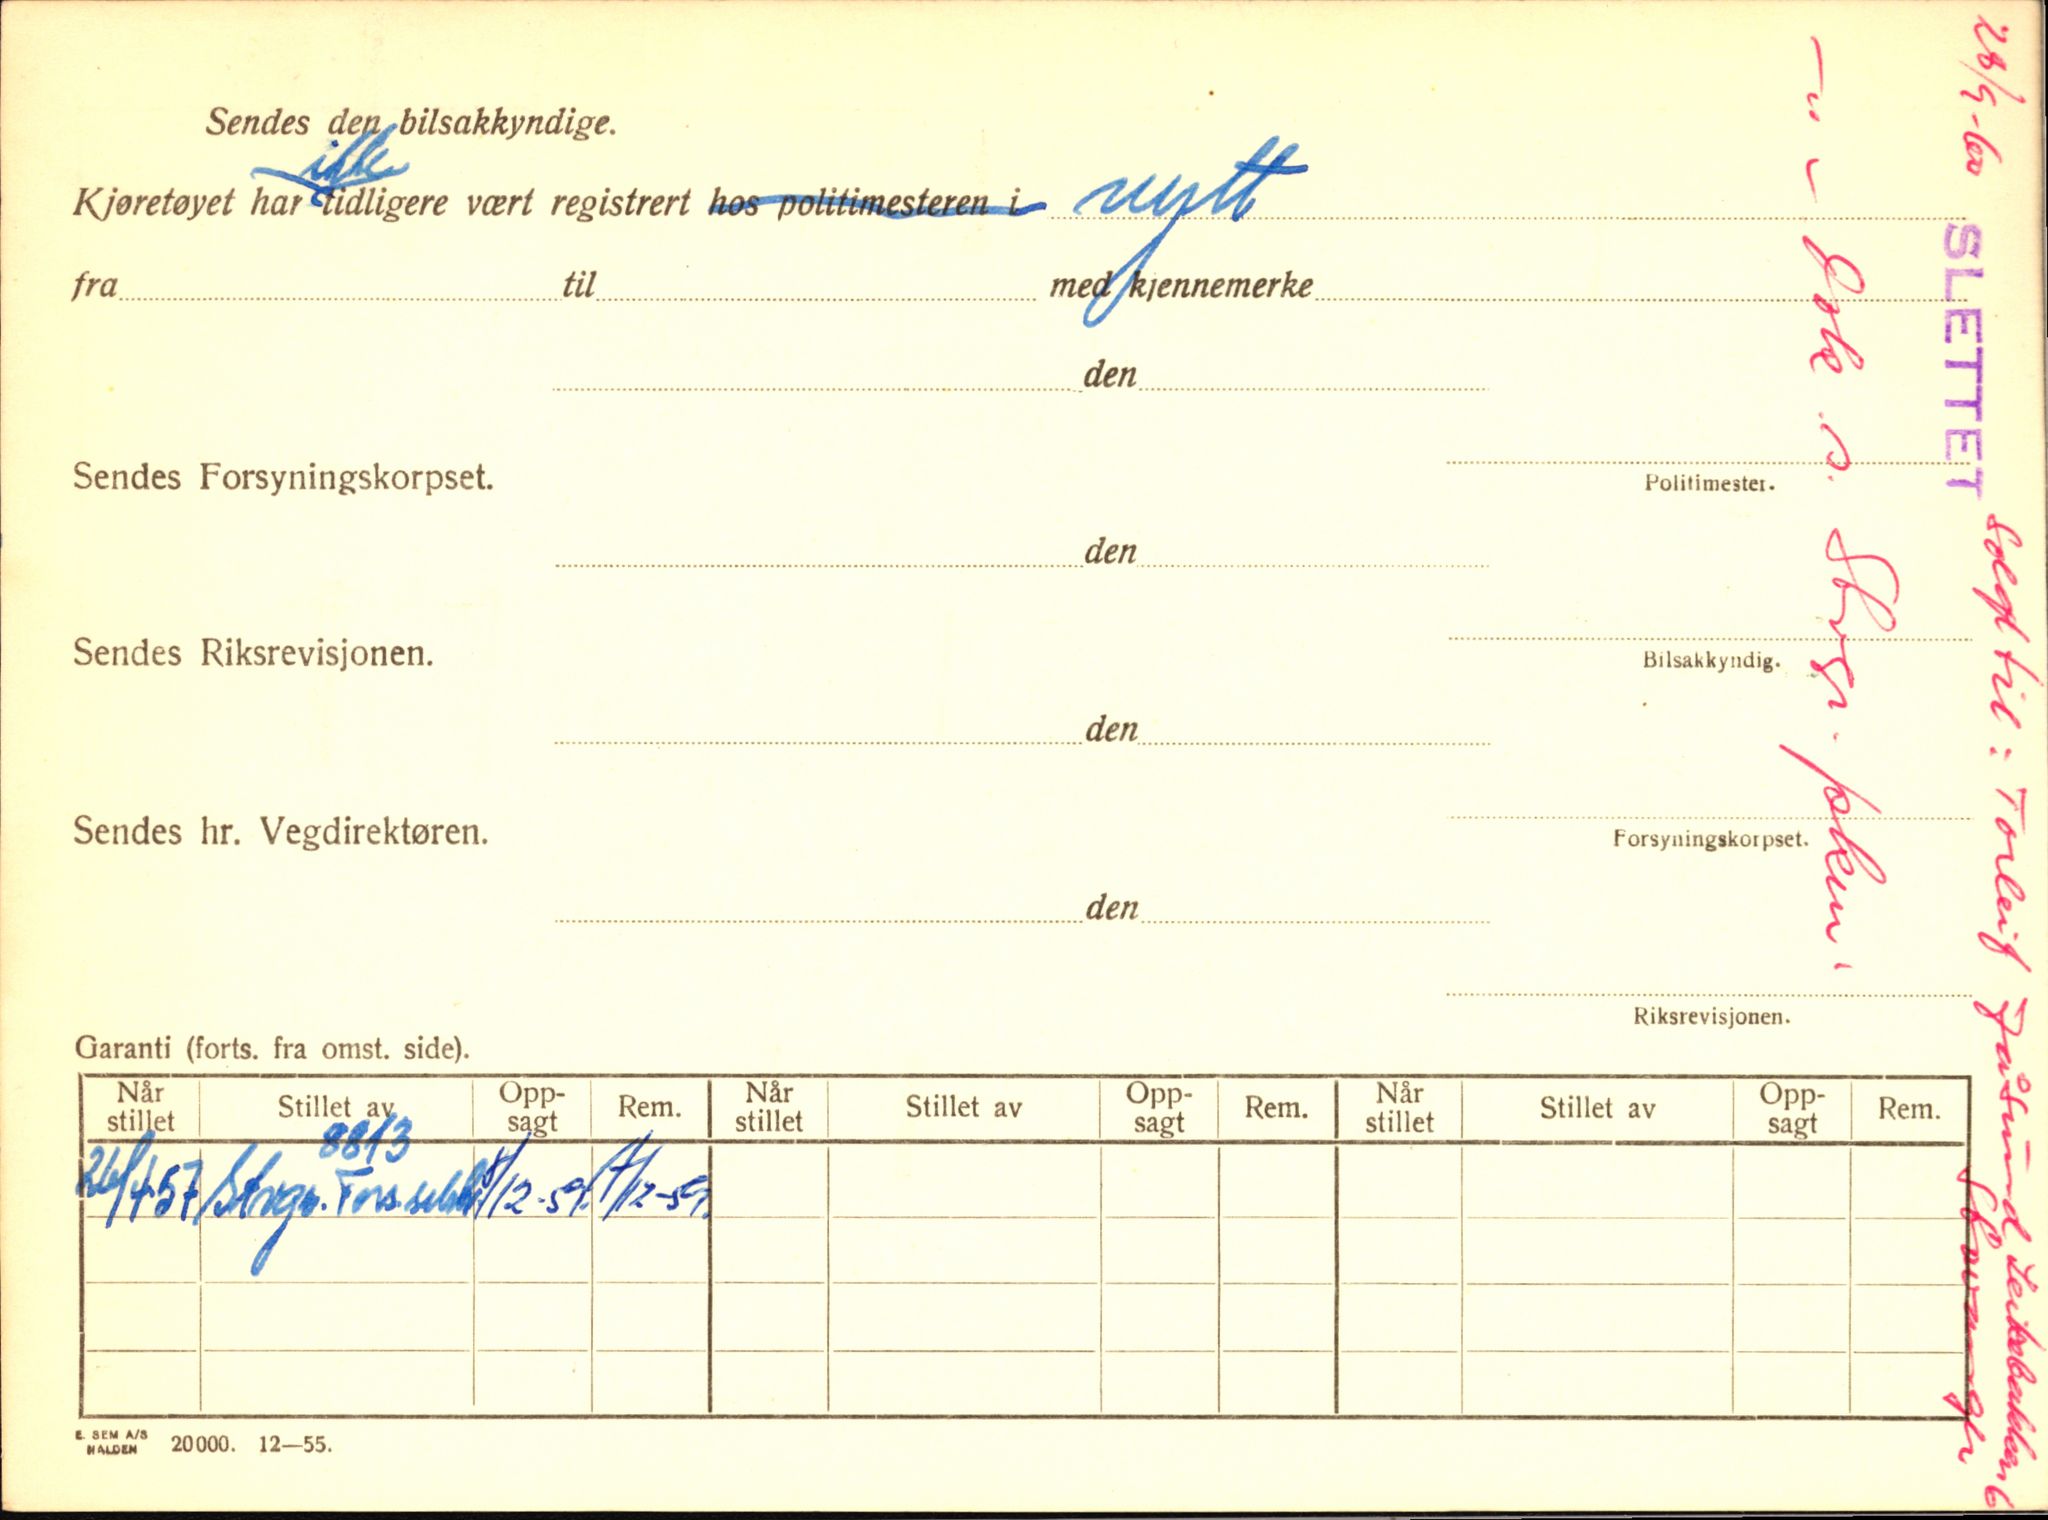 Sendes den bilsakkyndige.
ikke
Kjøretøyet har tidligere vært registrert hos politimesteren i nytt
fra til med kjennemerke
den
Politimester.
Sendes Forsyningskorpset.
den
Bilsakkyndig.
Sendes Riksrevisjonen.
den
Forsyningskorpset.
Sendes hr. Vegdirektøren.
den
Riksrevisjonen.
Garanti (forts. fra omst. side).
Når stillet Stillet av Opp-sagt Rem. Når stillet Stillet av Opp-sagt Rem. Når stillet Stillet av Opp-sagt Rem.
8813
26/4-57 Stvgr. Fors.selsk. 4/12-59. 4/12-59.
E. SEM A/S
HALDEN 20000. 12—55.
28/9-60 SLETTET Solgt til: Torleif Jåsund Leikebakken 6
Stavanger
— " —